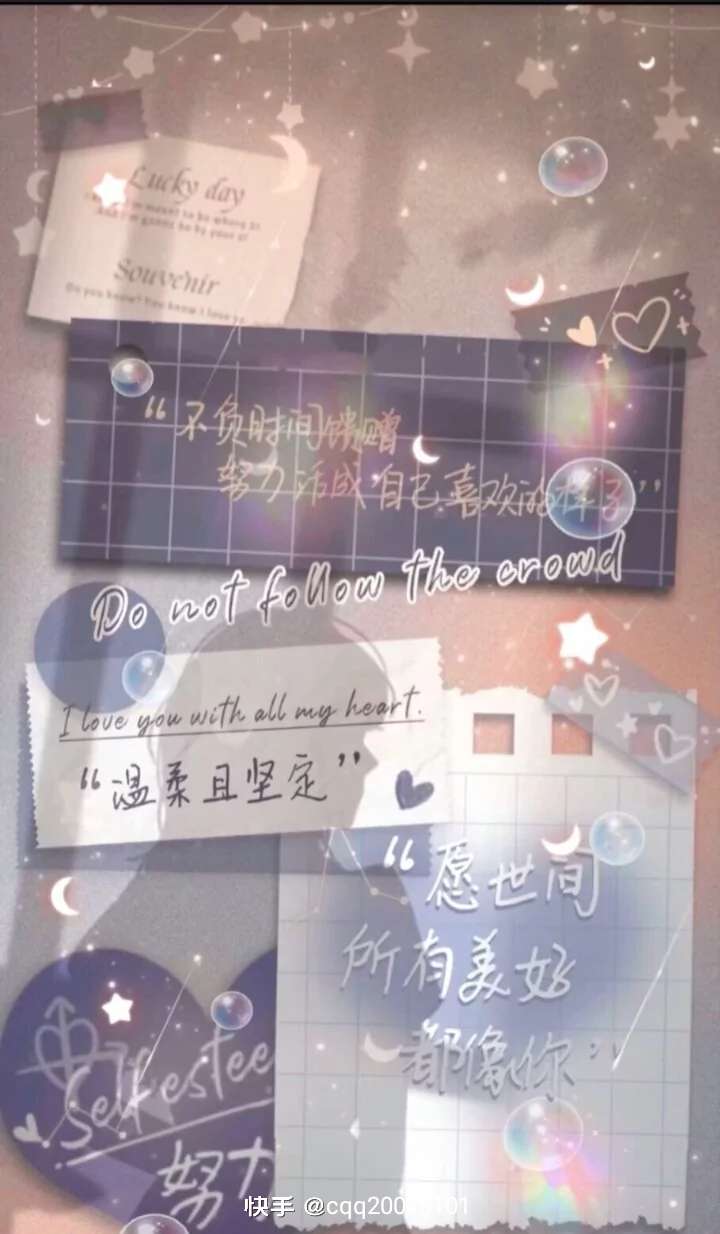 Lucky day
Souvenir
Do you know? You know I love yo
“不负时间馈赠
努力活成自己喜欢的样子”
Do not follow the crowd
I love you with all my heart.
“温柔且坚定”
“愿世间
所有美好
都像你”
Selfestee
努力
快手 @cqq200